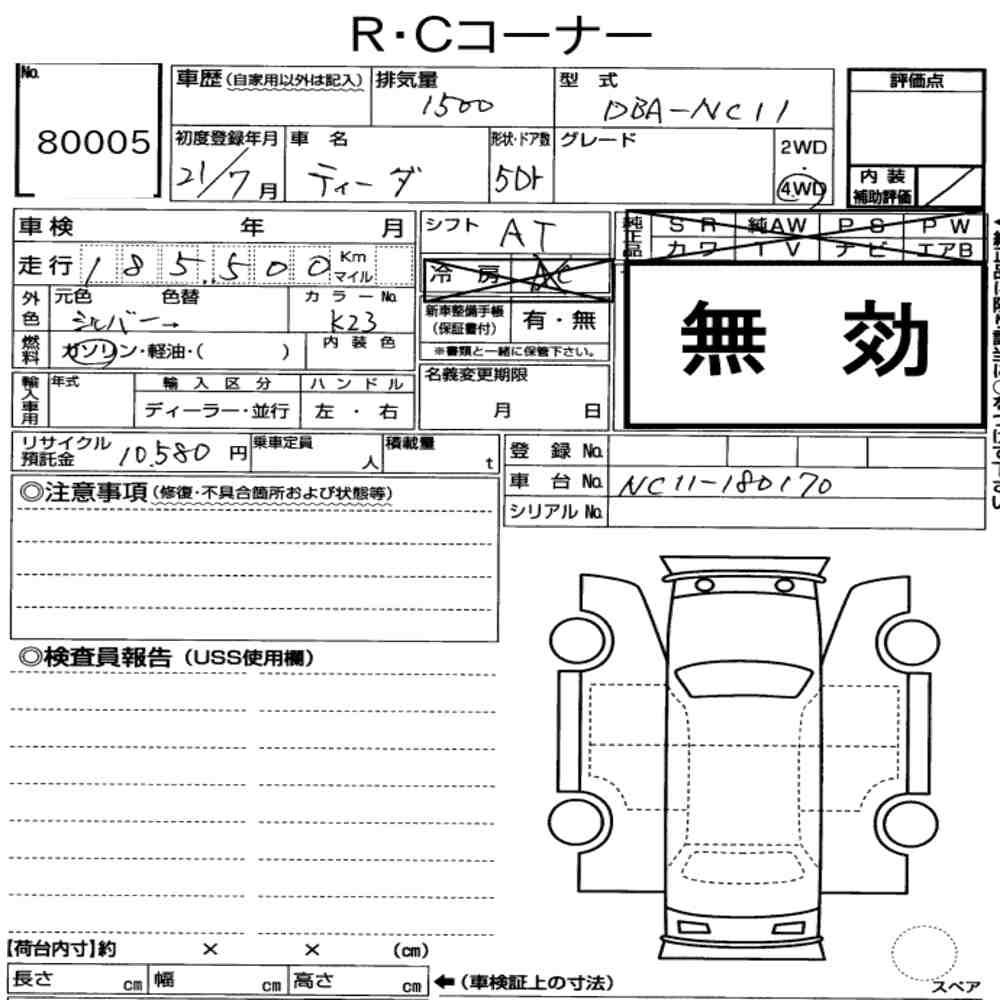 R・Cコーナー
No.
80005
車歴(自家用以外は記入)
排気量
1500
型 式
DBA-NC11
評価点
初度登録年月
21/7月
車 名
ティーダ
形状・ドア数
5Dr
グレード
2WD
・
4WD
内 装
補助評価
車検 年 月
シフト
AT
純正品
SR 純AW PS PW
カワ TV ナビ エアB
走行 185,500 Km
マイル
冷 房
AC
無 効
外色
元色 色替
シルバー→
カラーNo.
K23
新車整備手帳
(保証書付)
有・無
※書類と一緒に保管下さい。
燃料
ガソリン・軽油・( )
内装色
輸入車用
年式
輸入区分
ディーラー・並行
ハンドル
左・右
名義変更期限
月 日
リサイクル
預託金
10,580 円
乗車定員
人
積載量
t
登 録 No.
車 台 No. NC11-180170
シリアル No.
◎注意事項(修復・不具合箇所および状態等)
◎検査員報告(USS使用欄)
【荷台内寸】約 × × (cm)
長さ cm 幅 cm 高さ cm
←(車検証上の寸法)
スペア